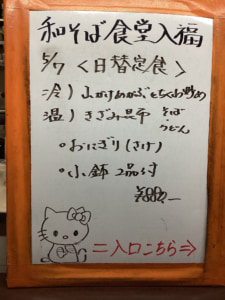 和そば食堂入福
5/7 <日替定食>
冷) 山かけめかぶとちくわ炒め
温) きざみ昆布 そば・うどん
・おにぎり(さけ)
・小鉢 2品付
=入口こちら⇒